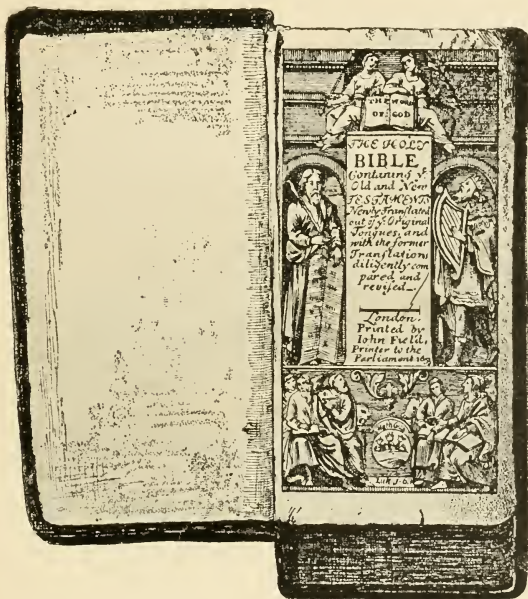 THE WORD
OF GOD
THE HOLY
BIBLE
Containing yͤ
Old and New
TESTAMENTS
Newly Translated
out of yͤ Original
Tongues, and
with the former
Translations
diligently com
pared and
revised
London.
Printed by
Iohn Field,
Printer to the
Parliament